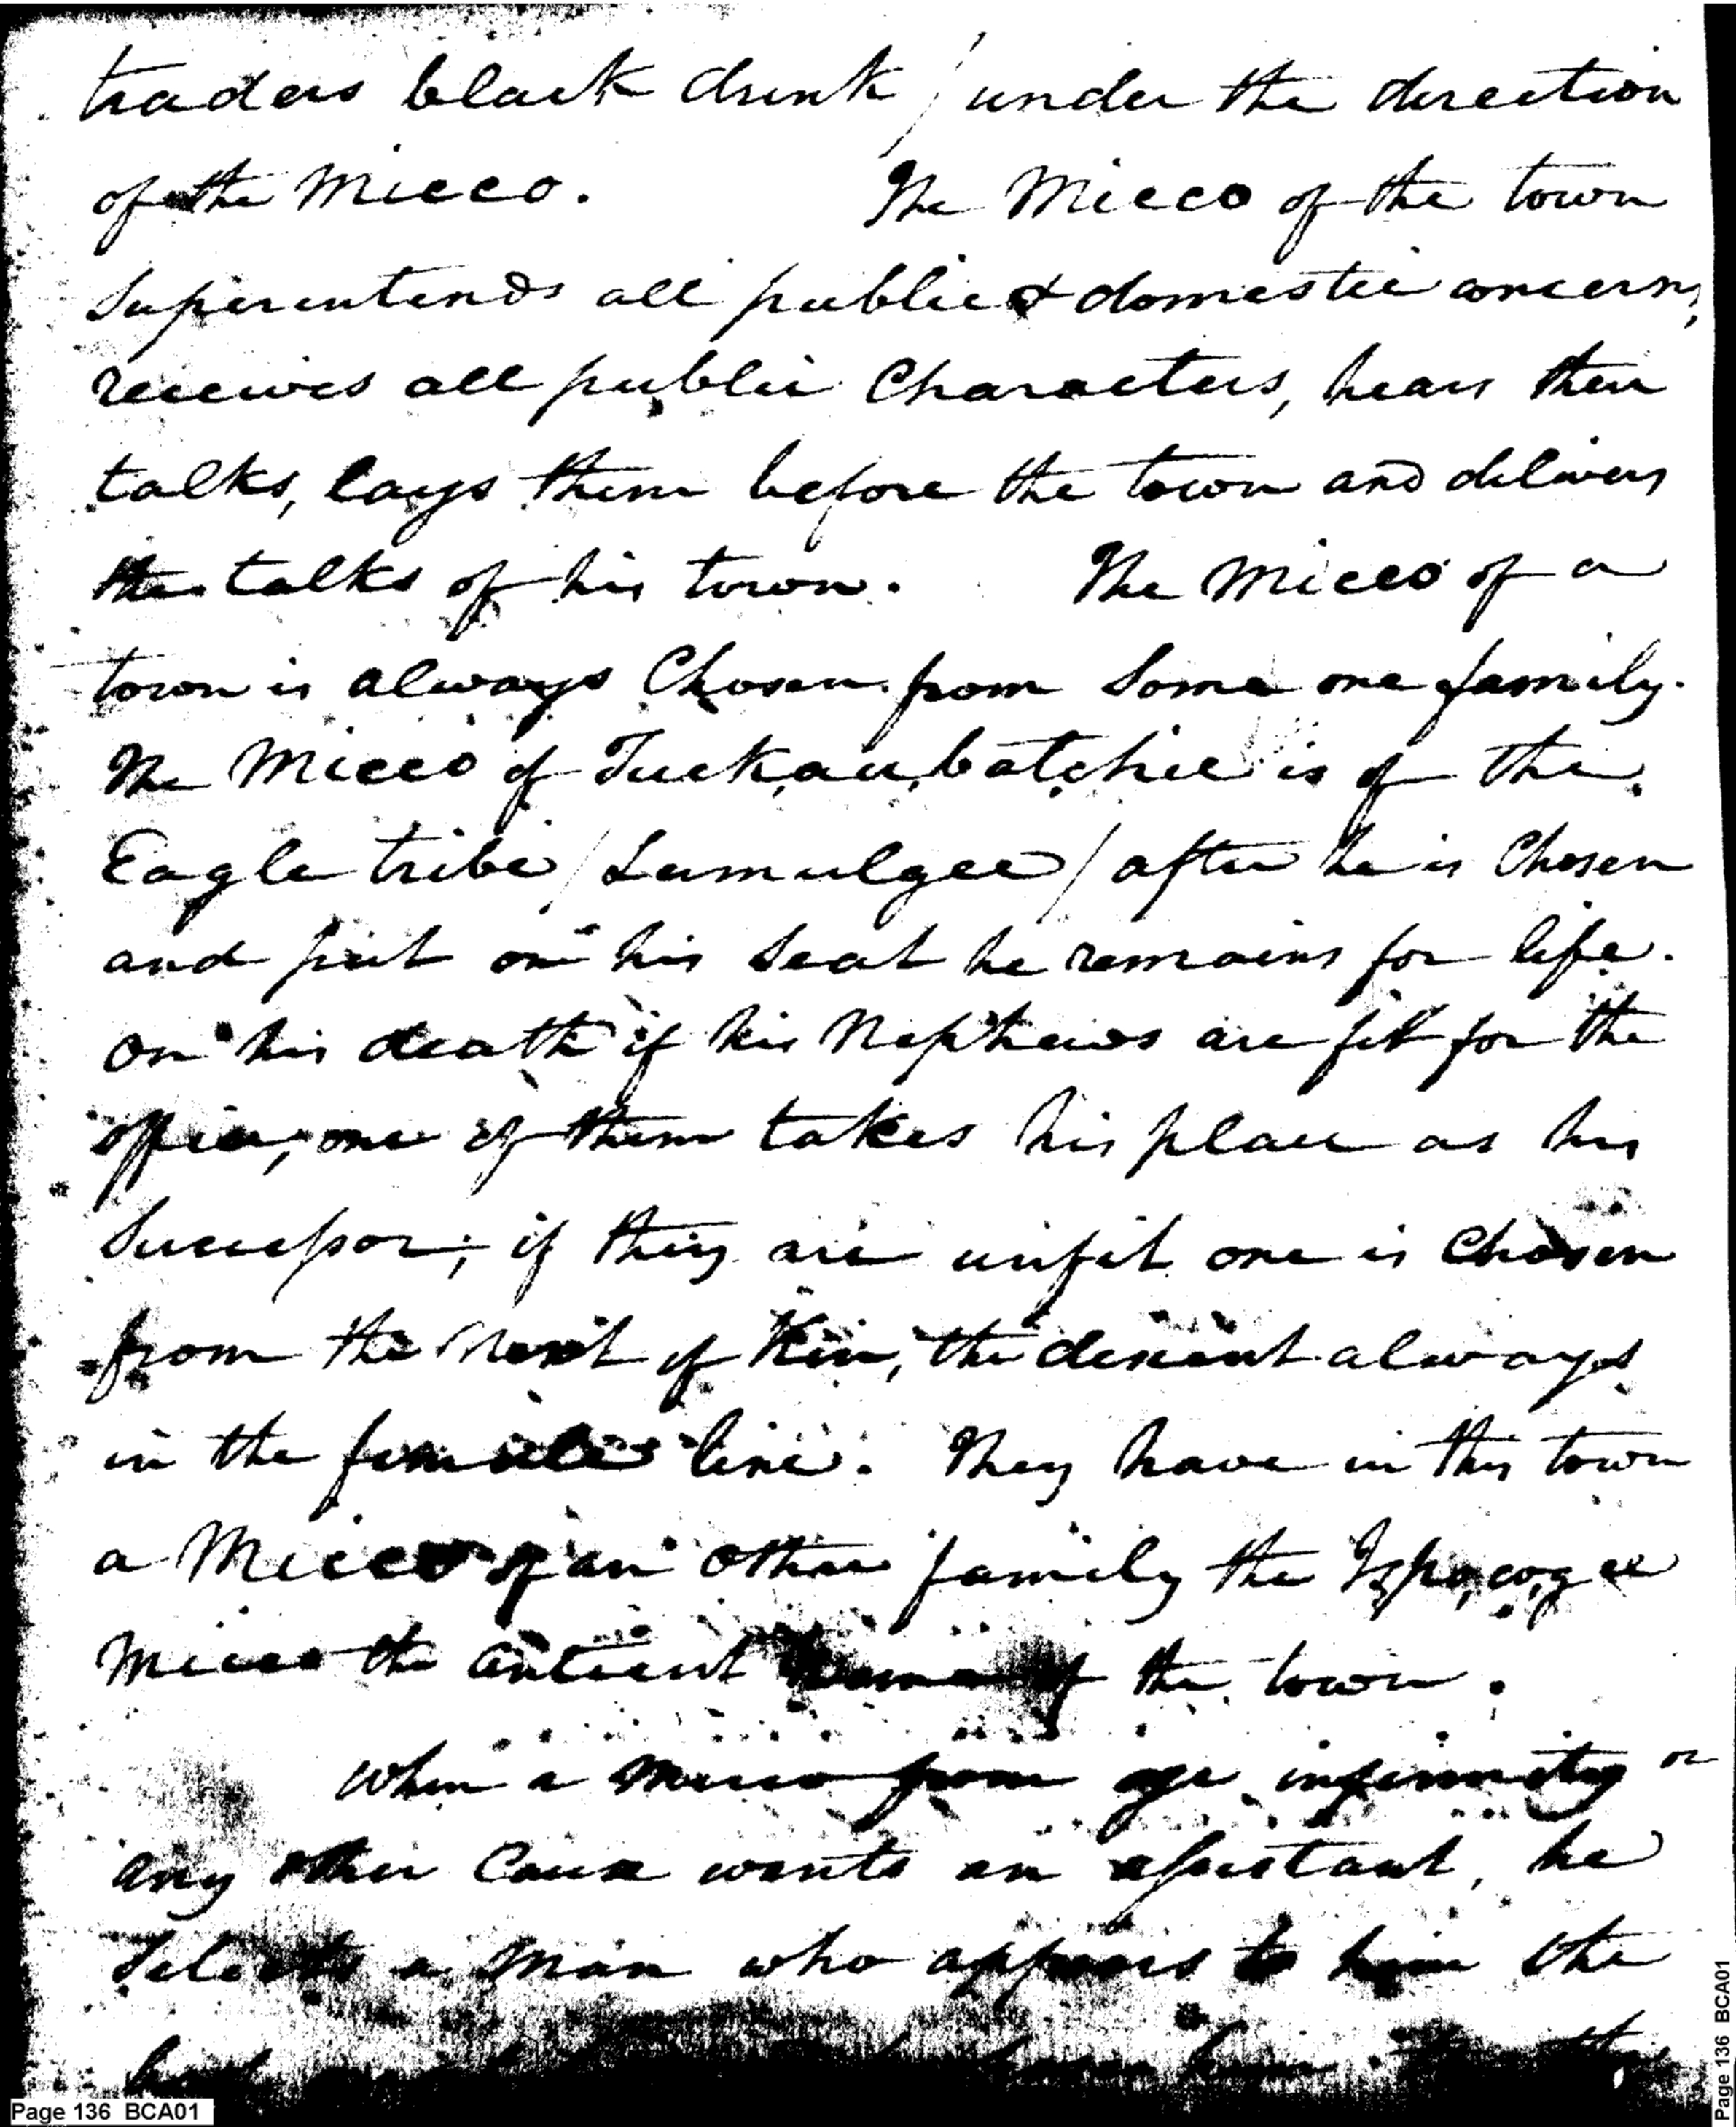 traders black drink / under the direction
of the Micco. The Micco of the town
Superintends all public & domestic concerns,
receives all public Characters, hears their
talks, lays them before the town and delivers
the talks of his town. The Micco of a
town is always Chosen from Some one family.
The Micco of Tuck,au,batchee is of the
Eagle tribe / Lumulgee / after he is Chosen
and put on his Seat he remains for life.
On his death if his Nephews are fit for the
office, one of them takes his place as his
Successor; if they are unfit one is Chosen
from the Next of Kin, the descent always
in the female line. They have in this town
a Micco of an other family the Ispo,co,gee
Micco the antient name of the town.
When a Micco from age infirmity or
any other Cause wants an assistant, he
Selects a man who appears to him the
Page 136 BCA01
Page 136 BCA01